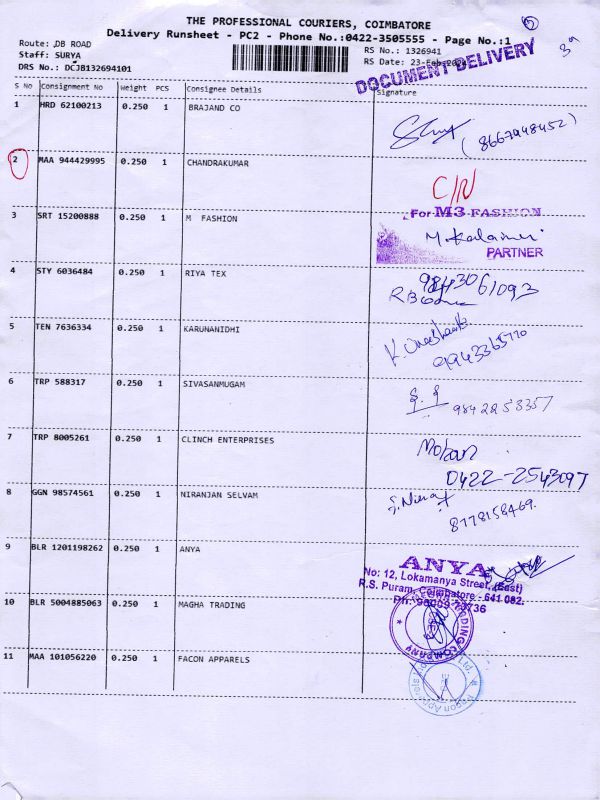 THE PROFESSIONAL COURIERS, COIMBATORE
Delivery Runsheet - PC2 - Phone No.:0422-3505555 - Page No.:1
Route: DB ROAD
Staff: SURYA
DRS No.: DCJB132694101
RS No.: 1326941
RS Date: 23-Feb
DOCUMENT DELIVERY
S No Consignment No Weight PCS Consignee Details Signature
1 HRD 62100213 0.250 1 BRAJAND CO (8667948452)
2 MAA 944429995 0.250 1 CHANDRAKUMAR C/N
3 SRT 15200888 0.250 1 M FASHION
For M3 FASHION
PARTNER
4 STY 6036484 0.250 1 RIYA TEX
5 TEN 7636334 0.250 1 KARUNANIDHI
9943365770
6 TRP 588317 0.250 1 SIVASANMUGAM
9842253357
7 TRP 8005261 0.250 1 CLINCH ENTERPRISES Mohan
0422-2543097
8 GGN 98574561 0.250 1 NIRANJAN SELVAM
8778158469.
9 BLR 1201198262 0.250 1 ANYA
ANYA
No: 12, Lokamanya Street, (East)
R.S. Puram, Coimbatore - 641 002.
10 BLR 5004885063 0.250 1 MAGHA TRADING
TRADING COMPANY
11 MAA 101056220 0.250 1 FACON APPARELS
Facon Apparels Ltd.